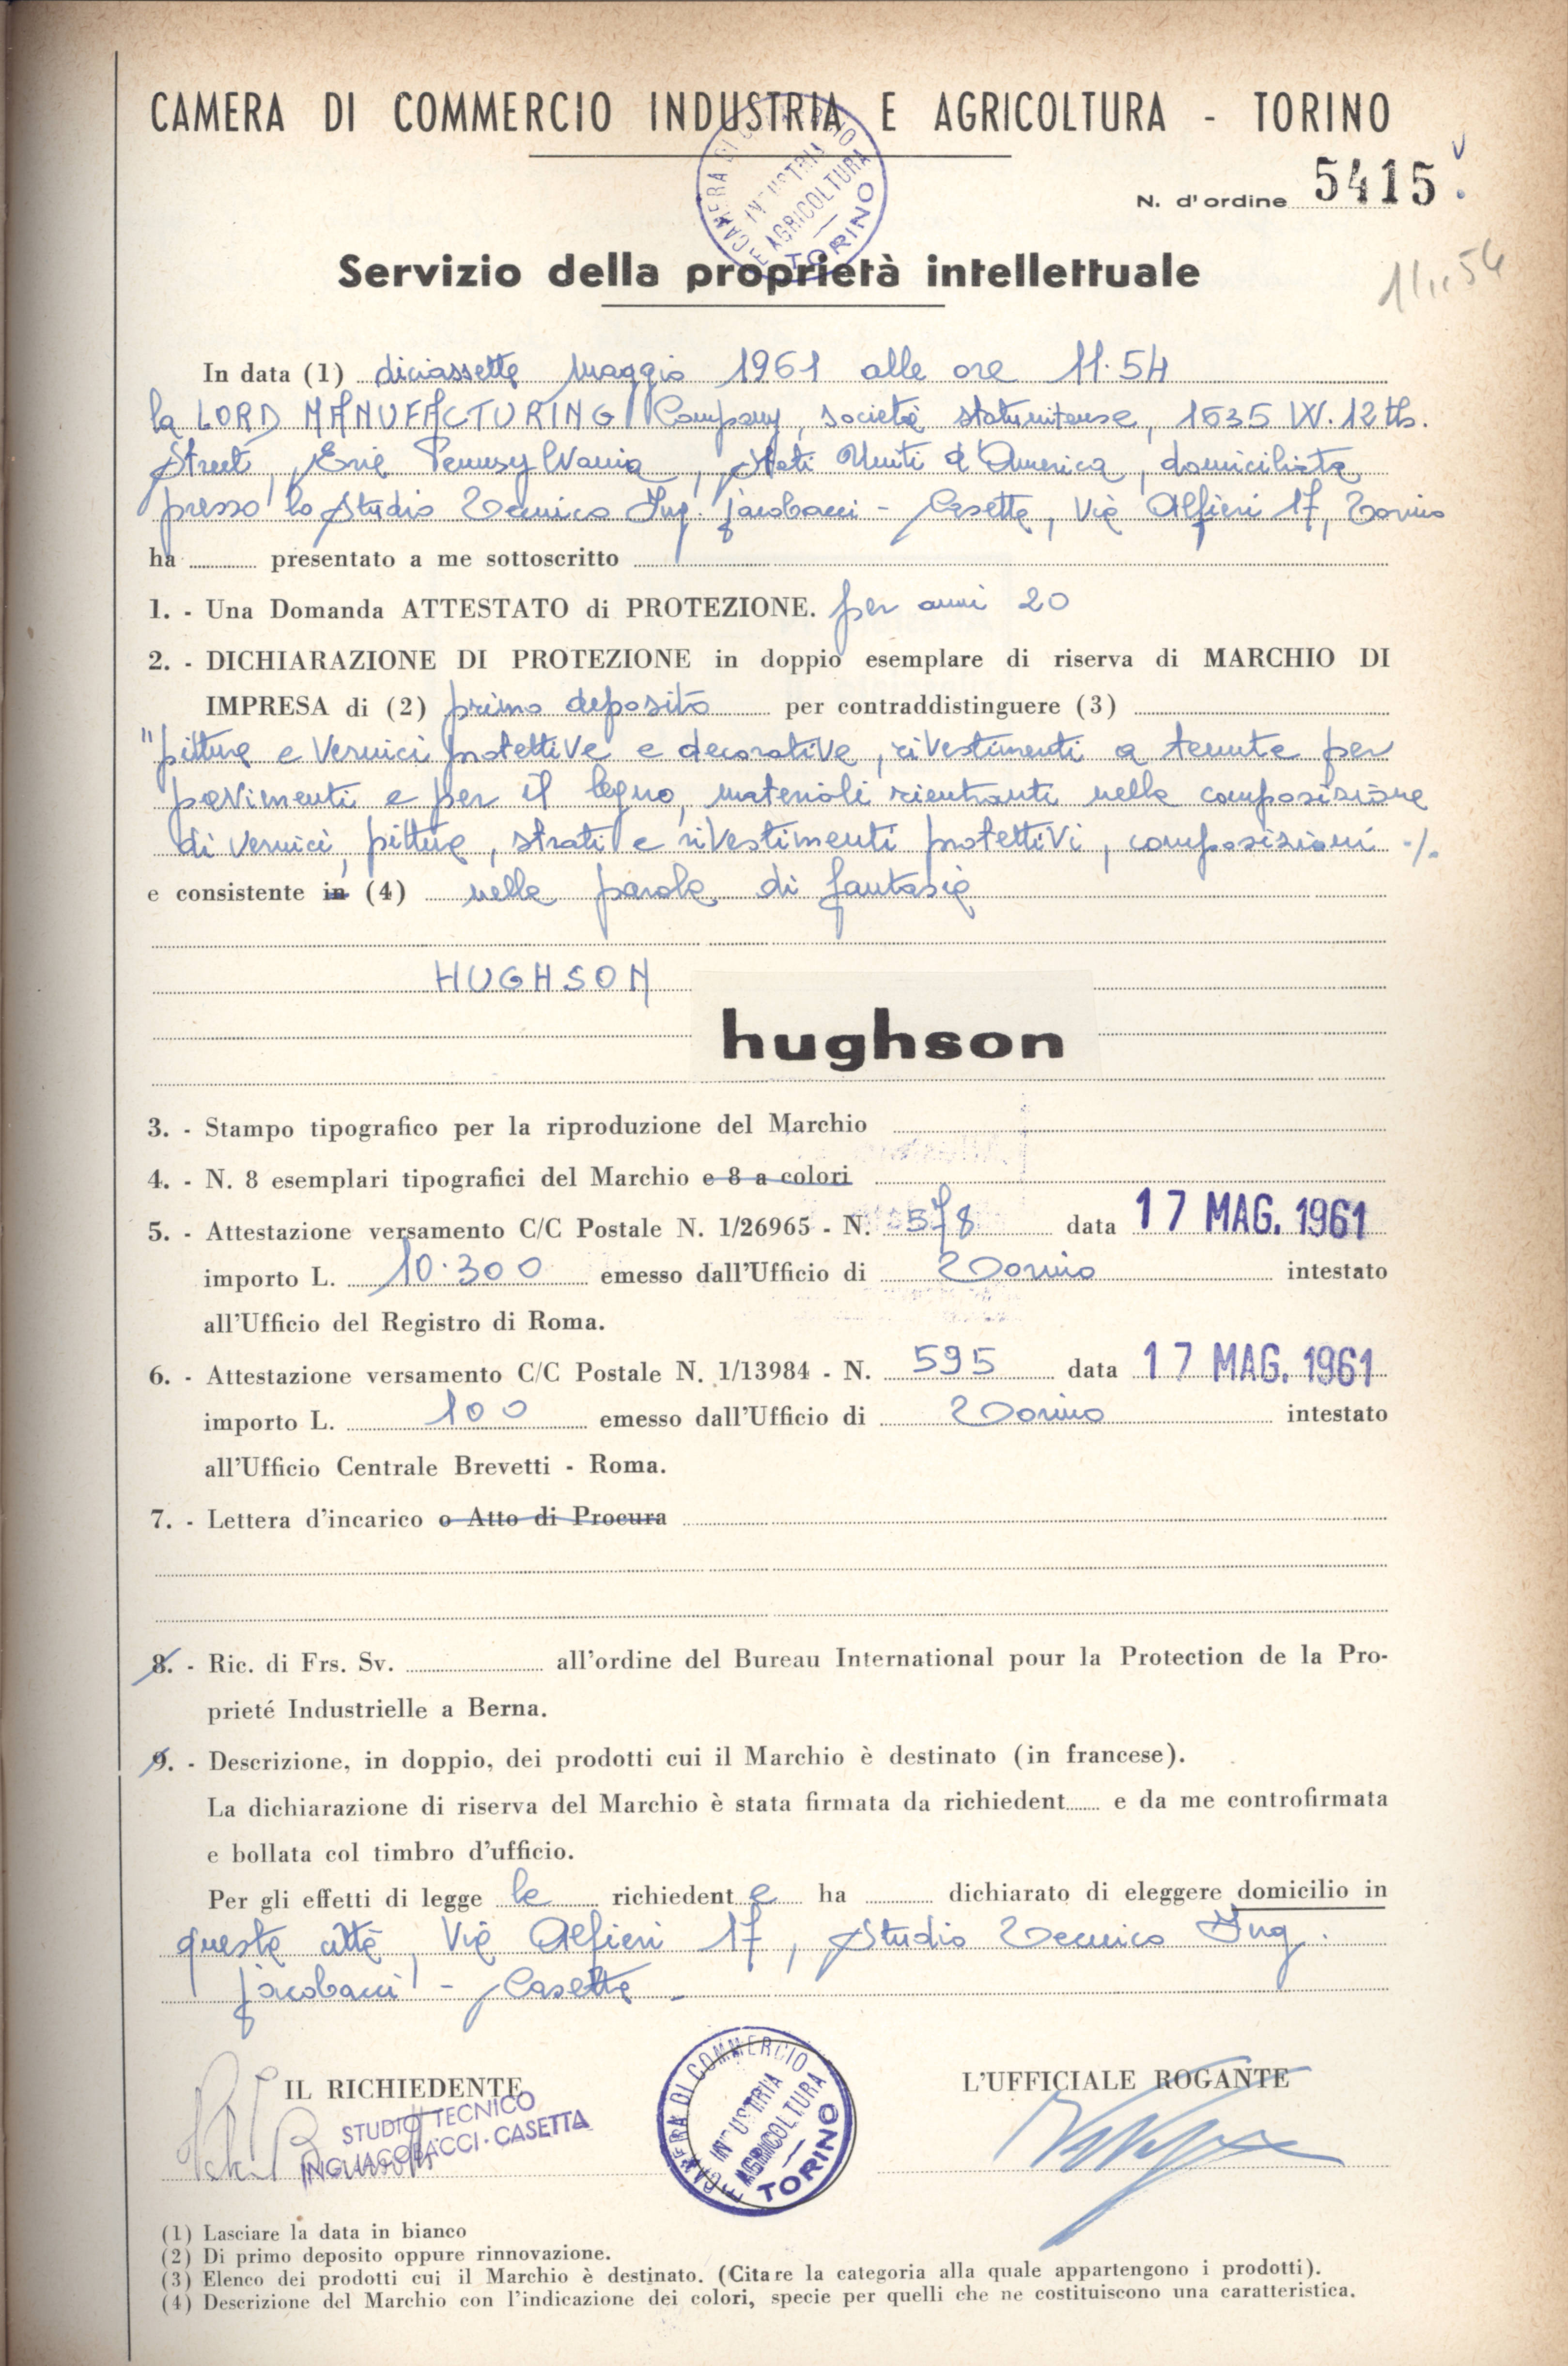 CAMERA DI COMMERCIO INDUSTRIA E AGRICOLTURA - TORINO
CAMERA DI COMMERCIO INDUSTRIA E AGRICOLTURA TORINO
N. d'ordine 5415
Servizio della proprietà intellettuale
11,,54
In data (1) diciassette maggio 1961 alle ore 11.54
la LORD MANUFACTURING Company, società statunitense, 1635 W. 12th.
Street, Erie Pennsylvania, Stati Uniti d'America, domiciliata
presso lo Studio Tecnico Ing. Jacobacci - Casetta, Via Alfieri 17, Torino
ha presentato a me sottoscritto
1. - Una Domanda ATTESTATO di PROTEZIONE. per anni 20
2. - DICHIARAZIONE DI PROTEZIONE in doppio esemplare di riserva di MARCHIO DI
IMPRESA di (2) primo deposito per contraddistinguere (3)
"pitture e vernici protettive e decorative, rivestimenti a tenuta per
pavimenti e per il legno, materiali rientranti nella composizione
di vernici, pitture, strati e rivestimenti protettivi, composizioni ./.
e consistente in (4) nella parola di fantasia
HUGHSON
hughson
3. - Stampo tipografico per la riproduzione del Marchio
4. - N. 8 esemplari tipografici del Marchio e 8 a colori
5. - Attestazione versamento C/C Postale N. 1/26965 - N. 578 data 17 MAG. 1961
importo L. 10.300 emesso dall'Ufficio di Torino intestato
all'Ufficio del Registro di Roma.
6. - Attestazione versamento C/C Postale N. 1/13984 - N. 595 data 17 MAG. 1961
importo L. 100 emesso dall'Ufficio di Torino intestato
all'Ufficio Centrale Brevetti - Roma.
7. - Lettera d'incarico o Atto di Procura
8. - Ric. di Frs. Sv. all'ordine del Bureau International pour la Protection de la Pro-
prieté Industrielle a Berna.
9. - Descrizione, in doppio, dei prodotti cui il Marchio è destinato (in francese).
La dichiarazione di riserva del Marchio è stata firmata da richiedent e da me controfirmata
e bollata col timbro d'ufficio.
Per gli effetti di legge la richiedent e ha dichiarato di eleggere domicilio in
questa città, Via Alfieri 17, Studio Tecnico Ing.
Jacobacci - Casetta -
IL RICHIEDENTE
STUDIO TECNICO
ING. JACOBACCI - CASETTA
CAMERA DI COMMERCIO INDUSTRIA E AGRICOLTURA TORINO
L'UFFICIALE ROGANTE
(1) Lasciare la data in bianco
(2) Di primo deposito oppure rinnovazione.
(3) Elenco dei prodotti cui il Marchio è destinato. (Citare la categoria alla quale appartengono i prodotti).
(4) Descrizione del Marchio con l'indicazione dei colori, specie per quelli che ne costituiscono una caratteristica.